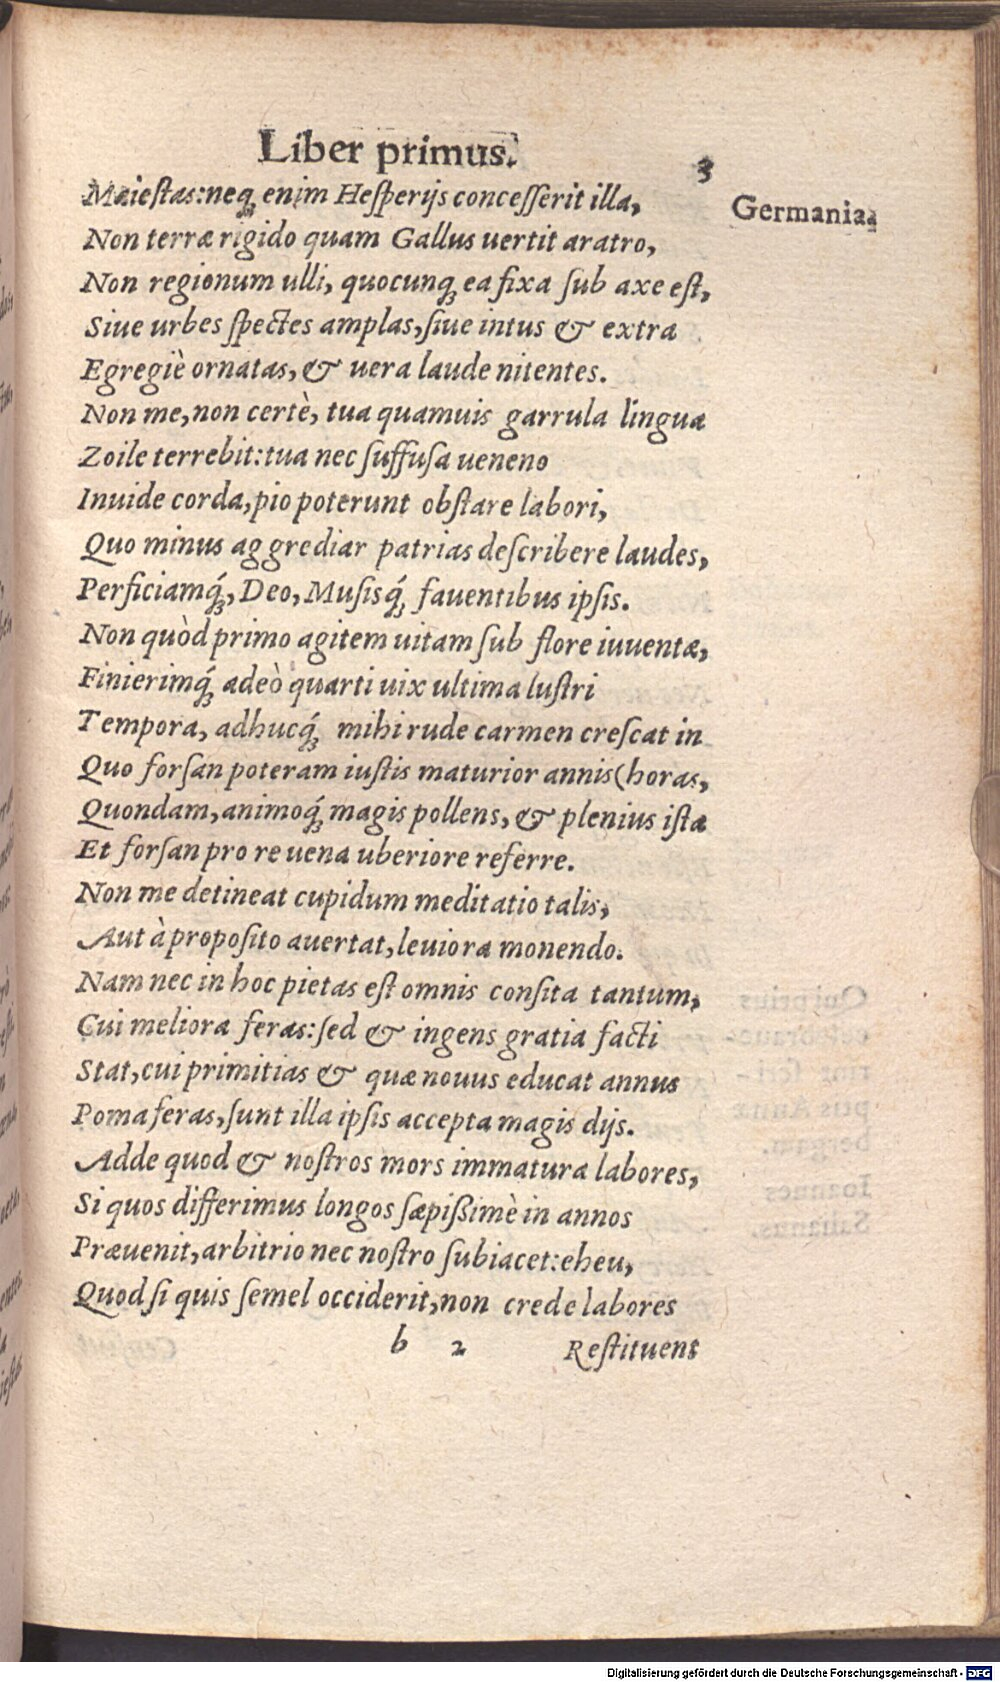 Liber primus.
3
Maiestas:neq; enim Hesperijs concesserit illa,
Germania.
Non terræ rigido quam Gallus uertit aratro,
Non regionum ulli, quocunq; ea fixa sub axe est,
Siue urbes spectes amplas,siue intus & extra
Egregiè ornatas, & uera laude nitentes.
Non me,non certè, tua quamuis garrula lingua
Zoile terrebit:tua nec suffusa ueneno
Inuide corda,pio poterunt obstare labori,
Quo minus aggrediar patrias describere laudes,
Perficiamq́;, Deo, Musisq́; fauentibus ipsis.
Non quòd primo agitem uitam sub flore iuuentæ,
Finierimq́; adeò quarti uix ultima lustri
Tempora, adhucq́; mihi rude carmen crescat in
Quo forsan poteram iustis maturior annis(horas,
Quondam,animoq́; magis pollens, & plenius ista
Et forsan pro re uena uberiore referre.
Non me detineat cupidum meditatio talis,
Aut à proposito auertat,leuiora monendo.
Nam nec in hoc pietas est omnis consita tantum,
Cui meliora feras:sed & ingens gratia facti
Stat,cui primitias & quæ nouus educat annus
Poma feras,sunt illa ipsis accepta magis dijs.
Adde quod & nostros mors immatura labores,
Si quos differimus longos sæpißimè in annos
Præuenit,arbitrio nec nostro subiacet:eheu,
Quod si quis semel occiderit,non crede labores
b 2 Restituent
Digitalisierung gefördert durch die Deutsche Forschungsgemeinschaft - DFG